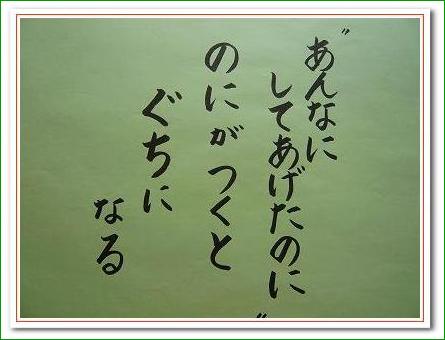 〝あんなに
してあげたのに〟
のにがつくと
ぐちに
なる